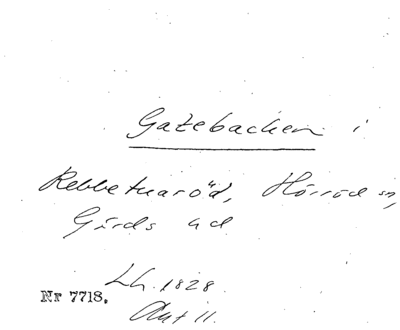 Gatebacken i
Rebbetuaröd, Hörröd sn,
Gärds hd
Lh. 1828.
Nr 7718.
Akt 11.